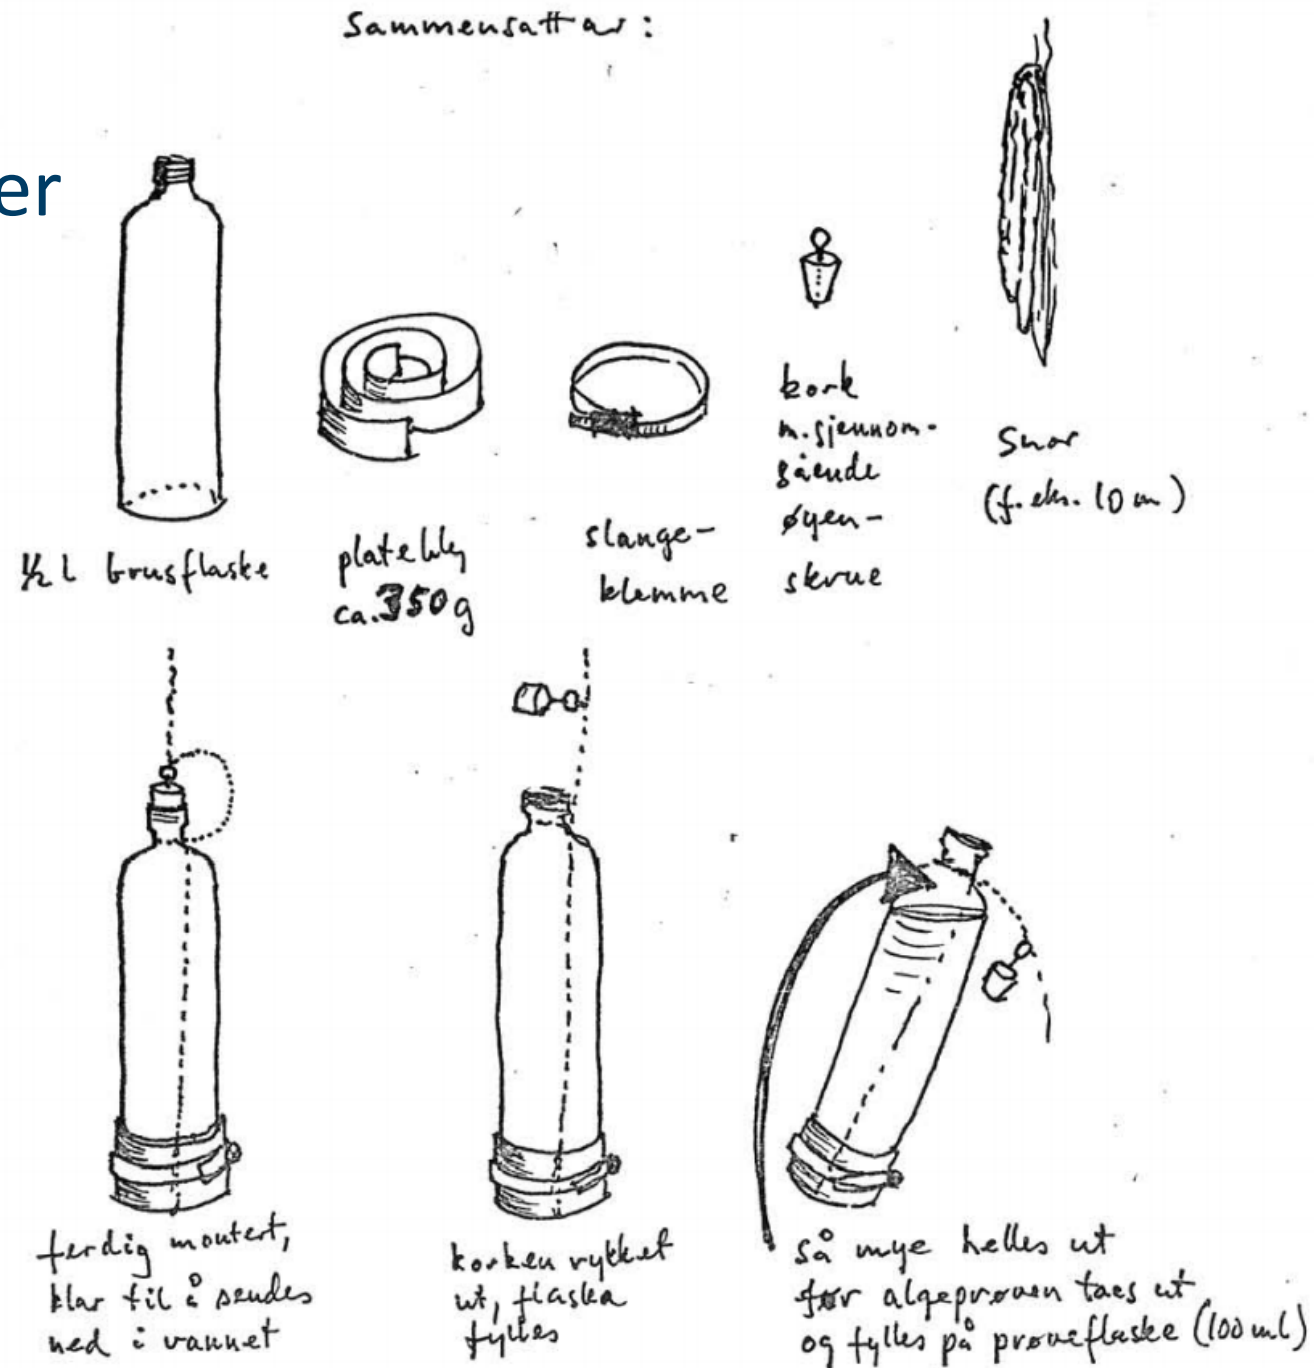 Sammensatt av:
er
1/2 l brusflaske
platebly
ca. 350 g
slange-
klemme
kork
m. gjennom-
gående
øyen-
skrue
Snor
(f. eks. 10 m)
ferdig montert,
klar til å sendes
ned i vannet
korken rykket
ut, flaska
fylles
så mye helles ut
før algeprøven taes ut
og fylles på prøveflaske (100 ml)